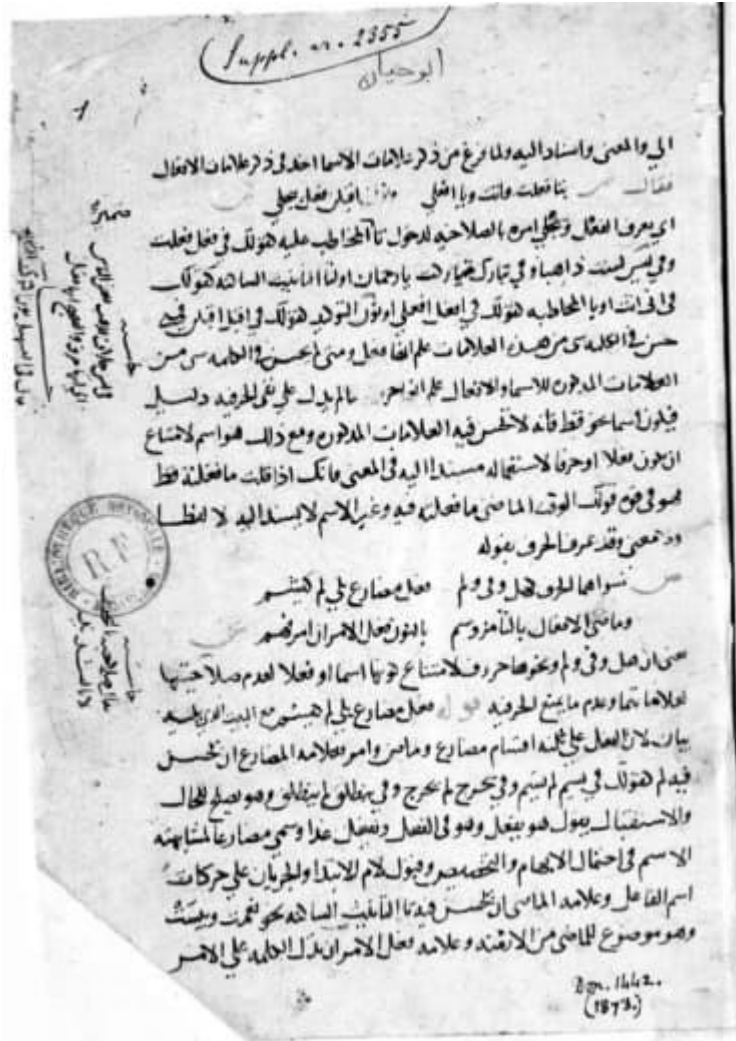 Suppl. ar. 2355
ابوحيان
1
الي والمعنى واسناد اليه ولما فرغ من ذكر علامات الاسما اخذ في ذكر علامات الافعال
فقال ص بتا فعلت واتت ويا افعلي ونون اقبلن فعل ينجلي
اي يعرف الفعل وينجلي امره بالصلاحيه لدخول تا المخاطب عليه كقولك في فعل فعلت
وفي ليس لست ذاهبا وفي تبارك تباركت يا رحمان او تا التانيث الساكنه كقولك
في اتى اتت او يا المخاطبه كقولك في افعل افعلي او نون التوكيد كقولك في اقبل اقبلن فمتى
حسن في الكلمه شى من هذه العلامات علم انها فعل ومتى لم يحسن في الكلمه شى من
العلامات المذكوره للاسما والافعال علم انها حرف ما لم يدل على نفي الحرفيه دليل
فيكون اسما نحو قط فانه لا يحسن فيه العلامات المذكوره ومع ذلك هو اسم لامتناع
ان يكون فعلا او حرفا لاستعماله مسندا اليه في المعنى فانك اذا قلت ما فعلته قط
فهو في قوه قولك الوقت الماضي ما فعلته فيه وغير الاسم لا يسند اليه لا لفظا
ولا معنى وقد عرف الحرف بقوله
ص سواهما الحرف كهل وفي ولم فعل مضارع يلي لم كيشم
وماضي الافعال بالتا مز وسم بالنون فعل الامر ان امر فهم ش
يعني ان هل وفي ولم ونحوها حروف لامتناع كونها اسما او فعلا لعدم صلاحيتها
لعلاماتهما وعدم ما يمنع الحرفيه قوله فعل مضارع يلي لم كيشم مع البيت الذي يليه
بيان لان الفعل على ثلثه اقسام مضارع وماض وامر فعلامه المضارع ان يحسن
فيه لم كقولك في يشم لم يشم وفي يخرج لم يخرج وفي ينطلق لم ينطلق وهو يصلح للحال
والاستقبال يقول هو يفعل وهو في الفعل ويفعل غدا وسمي مضارعا لمشابهته
الاسم في احتمال الابهام والتخصيص وقبول لام الابتدا والجريان على حركات
اسم الفاعل وعلامه الماضي ان يحسن فيه تا التانيث الساكنه نحو نعمت وبيست
وهو موضوع للماضي من الازمنه وعلامه فعل الامر ان تدل الكلمه على الامر
حاشيه
حاشيه
BIBLIOTHEQUE NATIONALE
RF
Don. 1442.
(1873.)